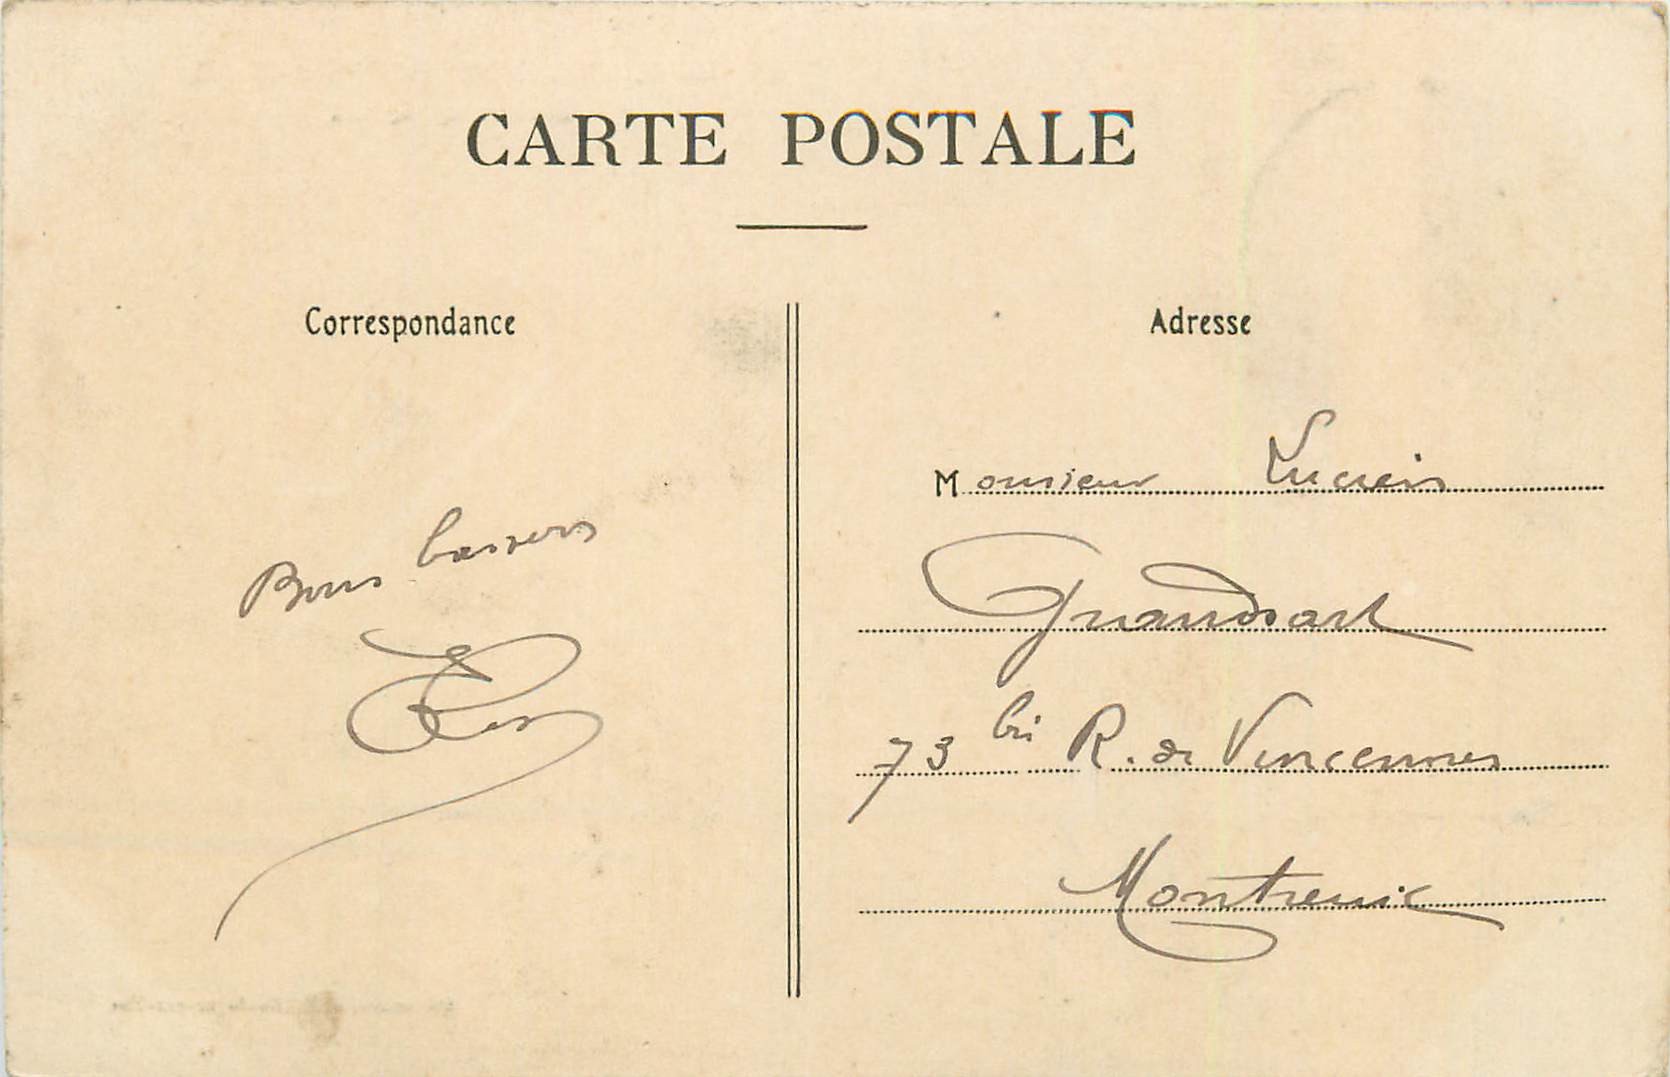 CARTE POSTALE
Correspondance
Bons baisers
Adresse
Monsieur Lucien
Grandsart
73 bis R. de Vincennes
Montreuil